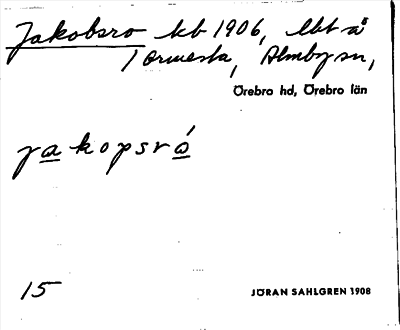 Jakobsro kb 1906, lht å
Tormesta, Almby sn,
Örebro hd, Örebro län
jakopsró
15
JÖRAN SAHLGREN 1908